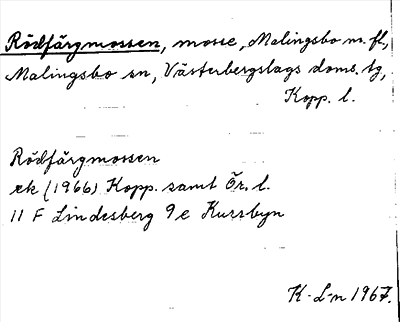 Rödfärgmossen, mosse, Malingsbo m. fl,
Malingsbo sn, Västerbergslags doms. tg,
Kopp. l.
Rödfärgmossen
ek (1966) Kopp. samt Ör. l.
11 F Lindesberg 9e Kursbyn
K-L-n 1967.